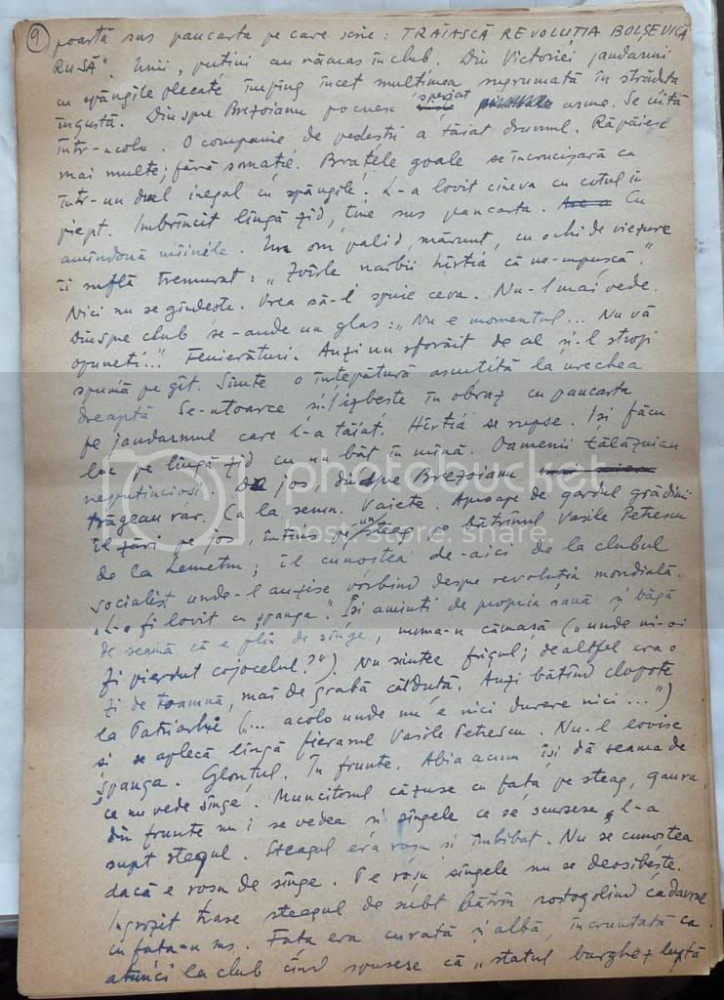 9
poartă sus pancarta pe care scrie: TRĂIASCĂ REVOLUȚIA BOLȘEVICĂ
RUSĂ". Unii, puțini au rămas în club. Din Victoriei jandarmi
cu spăngile plecate împing încet mulțimea sugrumată în străduța
îngustă. Dinspre Brezoianu pocnesc speriat arme. Se uită
într-acolo. O companie de pedeștri a tăiat drumul. Răpăiesc
mai multe; fără somație. Brațele goale se încrucișară ca
într-un duel inegal cu spăngile. L-a lovit cineva cu cotul în
piept. Îmbrîncit lîngă zid, ține sus pancarta. Cu
amîndouă mîinile. Un om palid, mărunt, cu ochi de viezure
îi suflă tremurat: "Zvîrle naibii hîrtia că ne-mpușcă."
Nici nu se gîndește. Vrea să-l spuie ceva. Nu-l mai vede.
Dinspre club se-aude un glas: "Nu e momentul... Nu vă
opuneți..." Fluierături. Auzi un sforăit de cal și-l stropi
spumă pe gît. Simte o înțepătură ascuțită la urechea
dreaptă Se-ntoarce și izbește în obraz cu pancarta
pe jandarmul care l-a tăiat. Hîrtia se rupse. Își făcu
loc pe lîngă zid cu un băț în mînă. Oamenii tălăzuiau
neputincioși. De jos, dinspre Brezoianu
trăgeau rar. Ca la semn. Vaiete. Aproape de gardul grădinii
îl zări pe jos, întins pe un steag, pe bătrînul Vasile Petrescu
de la Lemetru; îl cunoștea de-aici de la clubul
socialist unde-l auzise vorbind despre revoluția mondială.
"L-o fi lovit cu spanga". Își aminti de propria rană și băgă
de seamă că e plin de sînge, numa-n cămașă ("unde mi-oi
fi pierdut cojocelul?"). Nu simțea frigul; de altfel era o
zi de toamnă, mai de grabă călduță. Auzi bătînd clopote
la Patriarhie ("... acolo unde nu e nici durere nici...")
și se aplecă lîngă fierarul Vasile Petrescu. Nu-l lovise
spanga. Glonțul. În frunte. Abia acum își dă seama de
ce nu vede sînge. Muncitorul căzuse cu fața pe steag, gaura
din frunte nu i se vedea și sîngele ce se scursese l-a
supt steagul. Steagul era roșu și îmbibat. Nu se cunoștea
dacă e roșu de sînge. Pe roșu sîngele nu se deosibește.
Îngrozit trase steagul de subt bătrîn rostogolind cadavrul
cu fața-n sus. Fața era curată și albă, încruntată ca
atunci la club cînd spusese că "statul burghez luptă
photobucket
host. store. share.